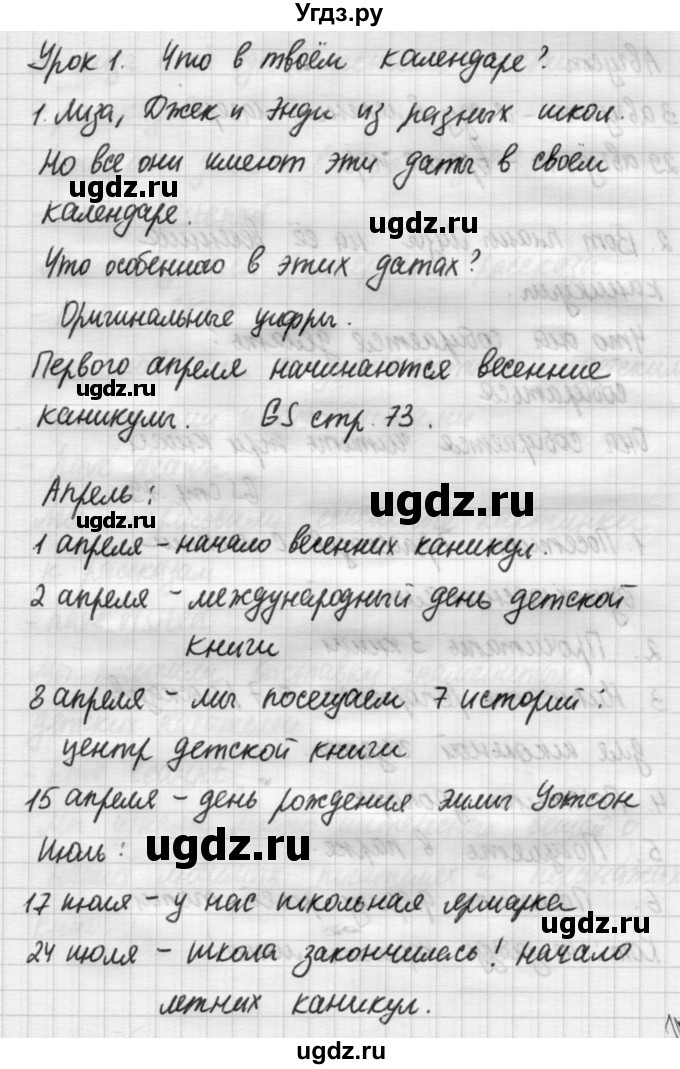 Угдз.ру
Урок 1. Что в твоём календаре?
1. Лиза, Джек и Энди из разных школ.
Но все они имеют эти даты в своём
ugdz.ru
ugdz.ru
календаре.
Что особенного в этих датах?
Оригинальные цифры.
Первого апреля начинаются весенние
ugdz.ru
каникулы. GS стр. 73.
Апрель:
ugdz.ru
ugdz.ru
1 апреля – начало весенних каникул.
2 апреля – международный день детской
книги
3 апреля – мы посещаем 7 историй:
центр детской книги
15 апреля – день рождения Эммы Уотсон
Июль:
ugdz.ru
17 июля – у нас школьная ярмарка
ugdz.ru
24 июля – школа закончилась! начало
летних каникул.
ugdz.ru